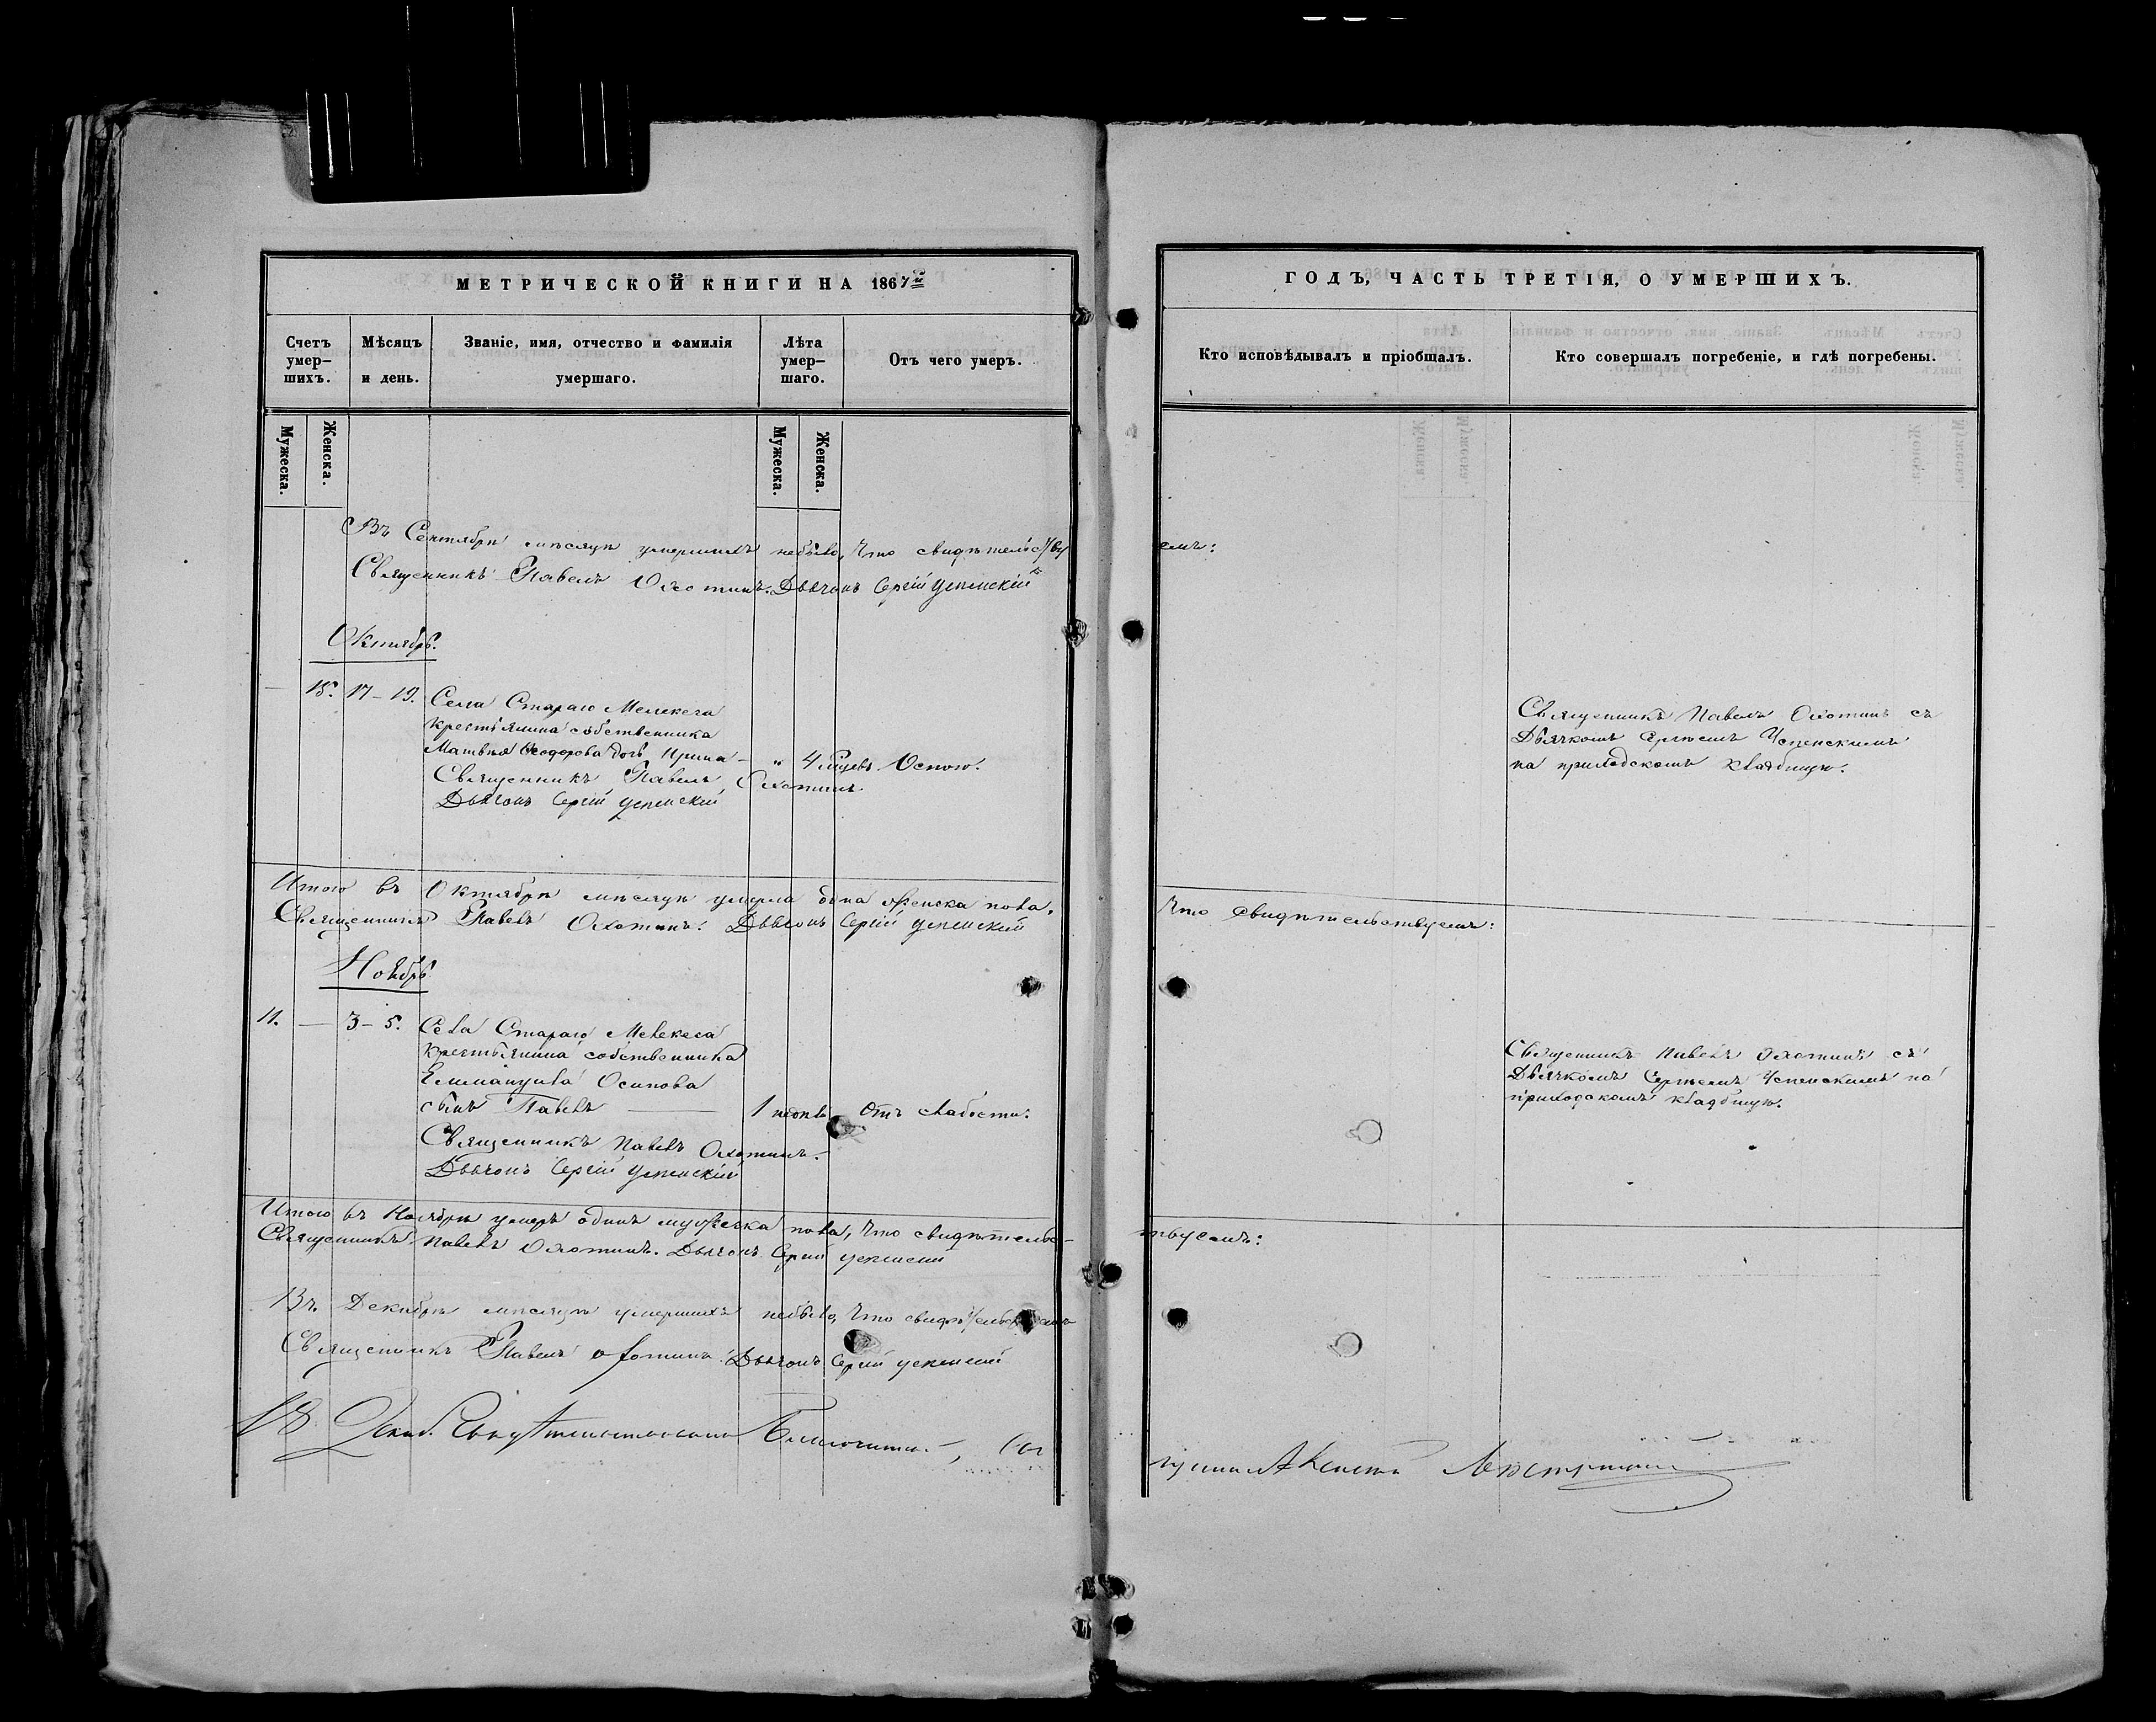 МЕТРИЧЕСКОЙ КНИГИ НА 1867й
Счетъ умер-шихъ.
Мѣсяцъ и день.
Званіе, имя, отчество и фамилія умершаго.
Лѣта умер-шаго.
Отъ чего умеръ.
Мужеска.
Женска.
Мужеска.
Женска.
Въ Сентябрѣ мѣсяцѣ умершихъ небыло, Что свидѣтельству
Священникъ Павелъ Охотинъ. Дьячокъ Сергій Успенскій
Октябрь.
— 15. 17–19. Села Стараго Мелекеса
Крестьянина собственника
Матвѣя Ѳеодорова дочь Ирина – „ 4 Оспою.
Священникъ Павелъ Охотинъ
Дьячокъ Сергій Успенскій
Итого въ Октябрѣ мѣсяцѣ умерла одна женска пола.
Священникъ Павелъ Охотинъ. Дьячокъ Сергій Успенскій
Ноябрь
11. — 3–5. Села Стараго Мелекеса
Крестьянина собственника
Еммануила Осипова
сынъ Павелъ — 1 Отъ слабости.
Священникъ Павелъ Охотинъ.
Дьячокъ Сергій Успенскій
Итого въ Ноябрѣ умеръ одинъ мужеска пола, Что свидѣтельс–
Священникъ Павелъ Охотинъ. Дьячокъ Сергій Успенскій
Въ Декабрѣ мѣсяцѣ умершихъ небыло, Что
Священникъ Павелъ Охотинъ. Дьячокъ Сергій Успенскій
ГОДЪ, ЧАСТЬ ТРЕТІЯ, О УМЕРШИХЪ.
Кто исповѣдывалъ и пріобщалъ.
Кто совершалъ погребеніе, и гдѣ погребены.
емъ:
Священникъ Павелъ Охотинъ съ
Дьячкомъ Сергѣемъ Успенскимъ
на приходскомъ кладбищѣ.
Что свидѣтельствуемъ:
Священникъ Павелъ Охотинъ съ
Дьячкомъ Сергѣемъ Успенскимъ на
приходскомъ кладбищѣ.
твуемъ: